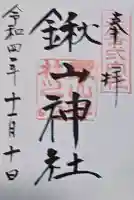 奉拝
鍬山神社
令和四年十一月十日